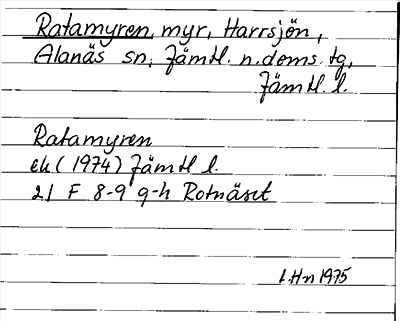 Ratamyren, myr, Harrsjön,
Alanäs sn, Jämtl. n. doms. tg,
Jämtl. l.
Ratamyren
ek (1974) Jämtl l.
21 F 8-9 g-h Rotnäset
L Hn 1975